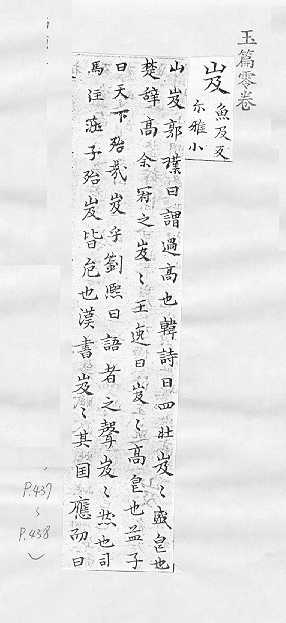 玉篇零卷
岌 魚及反
尒雅小
山岌郭璞曰謂過高也韓詩曰四牡岌〻盛皃也
楚辞高余冠之岌〻王逸曰岌〻高皃也孟子
曰天下殆哉岌乎劉熙曰語者之聲岌〻然也司
馬注莊子殆岌皆危也漢書岌〻其国應劭曰
P.437
P.438